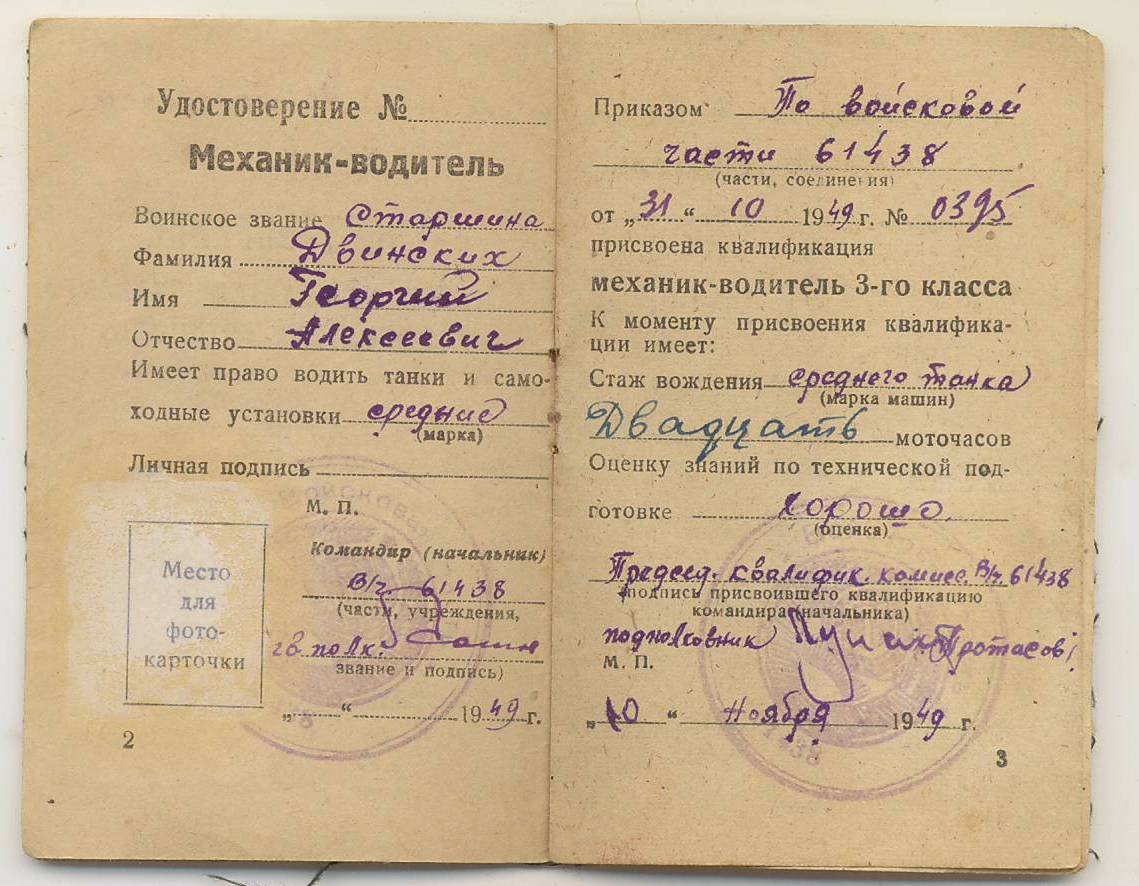 Удостоверение №
Механик-водитель
Воинское звание Старшина
Фамилия Двинских
Имя Георгий
Отчество Алексеевич
Имеет право водить танки и само-
ходные установки средние
(марка)
Личная подпись
М. П.
Командир (начальник)
В/ч 61438
(части, учреждения,
гв. полк.
звание и подпись)
Место
для
фото-
карточки
„ “ 1949 г.
2
Приказом По войсковой
части 61438
(части, соединения)
от „31“ 10 1949 г. № 0395
присвоена квалификация
механик-водитель 3-го класса
К моменту присвоения квалифика-
ции имеет:
Стаж вождения среднего танка
(марка машин)
Двадцать моточасов
Оценку знаний по технической под-
готовке хорошо
(оценка)
Председ. квалифик. комисс. В/ч. 61438
подпись присвоившего квалификацию
командира (начальника)
подполковник Протасов
М. П.
„10“ ноября 1949 г.
3